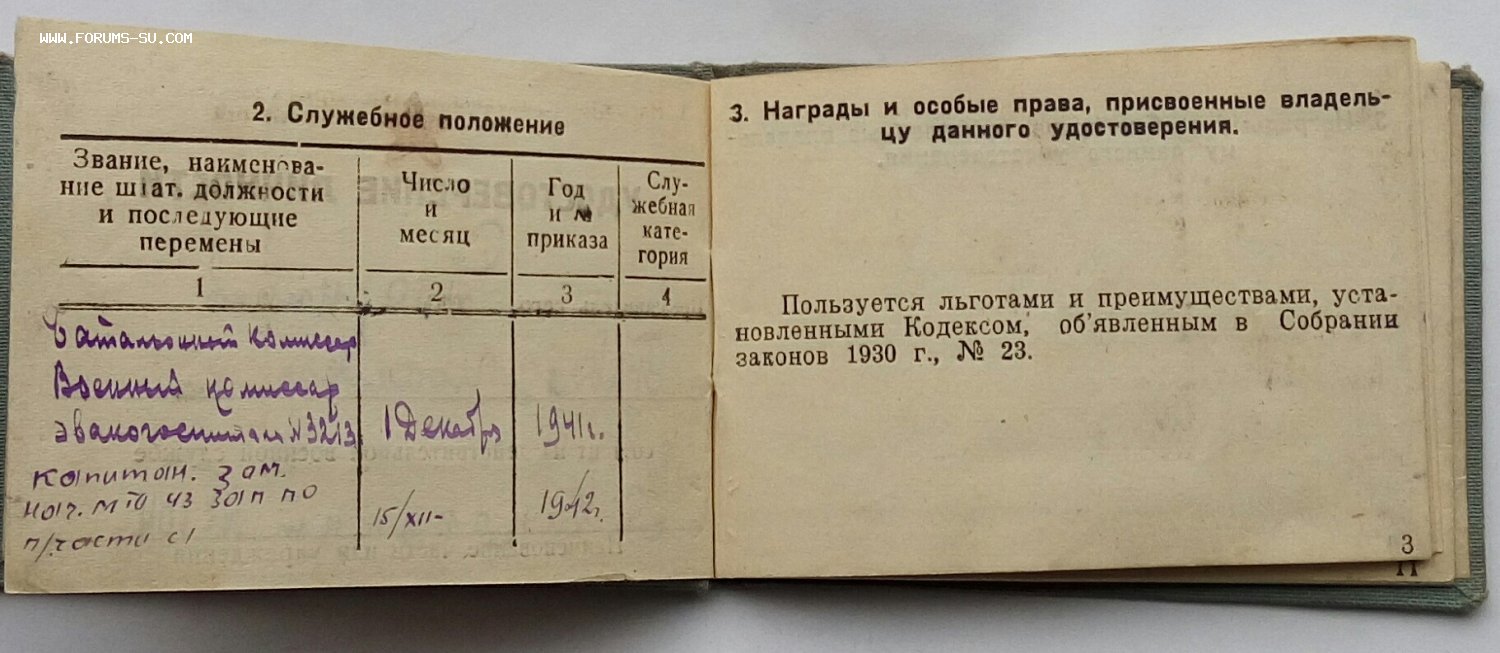 www.forums-su.com
2. Служебное положение
Звание, наименова-
ние штат. должности
и последующие
перемены
Число
и
месяц
Год
и №
приказа
Слу-
жебная
кате-
гория
1 2 3 4
Батальонный комиссар
Военный комиссар
эвакогоспиталя №3213 1 Декабря 1941г.
капитан. зам.
нач. по 15/XII- 1942г.
п/части
3. Награды и особые права, присвоенные владель-
цу данного удостоверения.
Пользуется льготами и преимуществами, уста-
новленными Кодексом, об'явленным в Собрании
законов 1930 г., № 23.
3
11